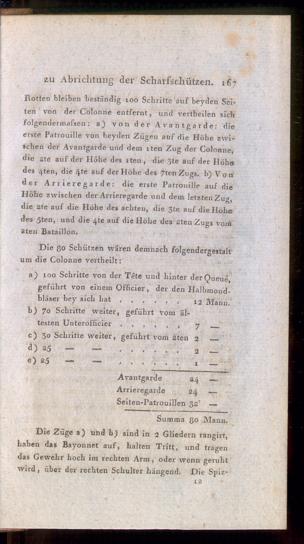 zu Abrichtung der Scharfschützen. 167
Rotten bleiben beständig 100 Schritte auf beyden Sei-
ten von der Colonne entfernt, und vertheilen sich
folgendermaſsen: a) von der Avantgarde: die
erste Patrouille von beyden Zügen auf die Höhe zwi-
schen der Avantgarde und dem 1ten Zug der Colonne,
die 2te auf der Höhe des 1ten, die 3te auf der Höhe
des 4ten, die 4te auf der Höhe des 7ten Zugs. b) Von
der Arrieregarde: die erste Patrouille auf die
Höhe zwischen der Arrieregarde und dem letzten Zug,
die 2te auf die Höhe des achten, die 3te auf die Höhe
des 5ten, und die 4te auf die Höhe des 2ten Zugs vom
2ten Bataillon.
Die 80 Schützen wären demnach folgendergestalt
um die Colonne vertheilt:
a) 100 Schritte von der Tête und hinter der Queuë,
geführt von einem Officier, der den Halbmond-
bläser bey sich hat . . . . . . 12 Mann.
b) 70 Schritte weiter, geführt vom äl-
testen Unterofficier . . . . . 7 —
c) 30 Schritte weiter, geführt vom 2ten 2 —
d) 25 — — . . . . . 2 —
e) 25 — — . . . . . 1 —
Avantgarde 24 —
Arrieregarde 24 —
Seiten-Patrouillen 32 —
Summa 80 Mann.
Die Züge a) und b) sind in 2 Gliedern rangirt,
haben das Bayonnet auf, halten Tritt, und tragen
das Gewehr hoch im rechten Arm, oder wenn geruht
wird, über der rechten Schulter hängend. Die Spiz-
12